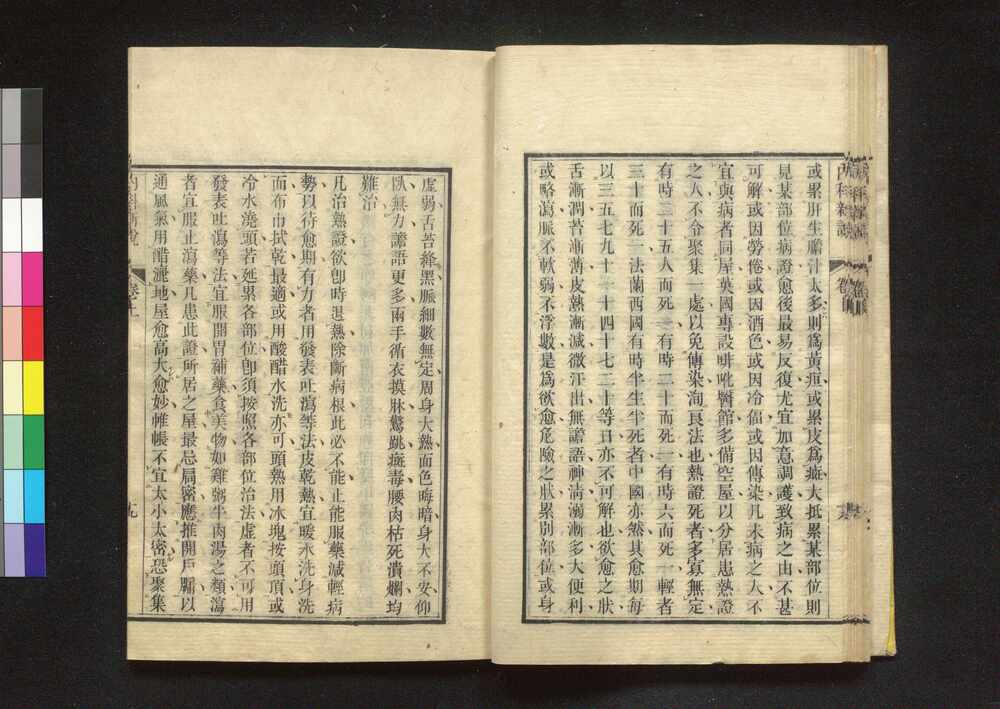 或累肝生膽汁太多則爲黃疸或累皮爲癍大抵累某部位則
見某部位病證愈後最易反復尤宜加意調護致病之由不甚
可解或因勞倦或因酒色或因冷傷或因傳染凡未病之人不
宜與病者同屋英國專設啡吡醫館多備空屋以分居患熱證
之人不令聚集一處以免傳染洵良法也熱證死者多寡無定
有時三十五人而死一有時二十而死一有時六而死一輕者
三十而死一法蘭西國有時半生半死者中國亦然其愈期每
以三五七九十一十四十七二十等日亦不可解也欲愈之狀
舌漸潤苔漸薄皮熱漸減微汗出無譫語神清溺漸多大便利
或略瀉脈不軟弱不浮數是爲欲愈危險之狀累別部位或身
虛弱舌苔絳黑脈細數無定周身大熱而色晦暗身大不安仰
臥無力譫語更多兩手循衣摸牀驚跳癍毒腰肉枯死潰爛均
難治
凡治熱證欲卽時退熱除斷病根此必不能止能服藥減輕病
勢以待愈期有力者用發表吐瀉等法皮乾熱宜暖水洗身洗
面布巾拭乾最適或用酸醋水洗亦可頭熱用冰塊按頭頂或
冷水澆頭若延累各部位卽須按照各部位治法虛者不可用
發表吐瀉等法宜服開胃補藥食美物如雞粥牛肉湯之類瀉
者宜服止瀉藥凡患此證所居之屋最忌局密應推開戶牖以
通風氣用醋灑地屋愈高大愈妙帷帳不宜太小太密恐聚集
內科新說
卷上
九